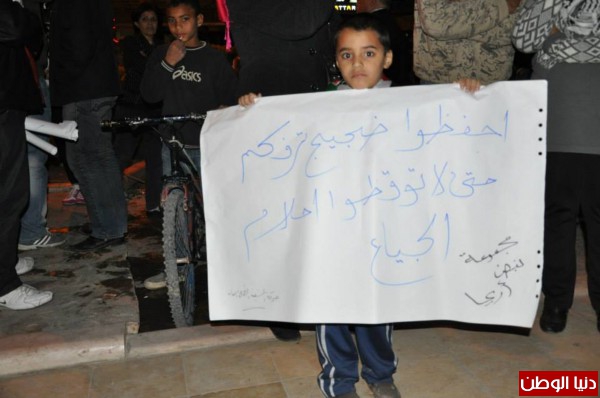 احفظوا ضجيج ترفكم
حتى لا توقظوا احلام
الجياع
مجموعة
نبض
أريحا
asics
دنيا الوطن